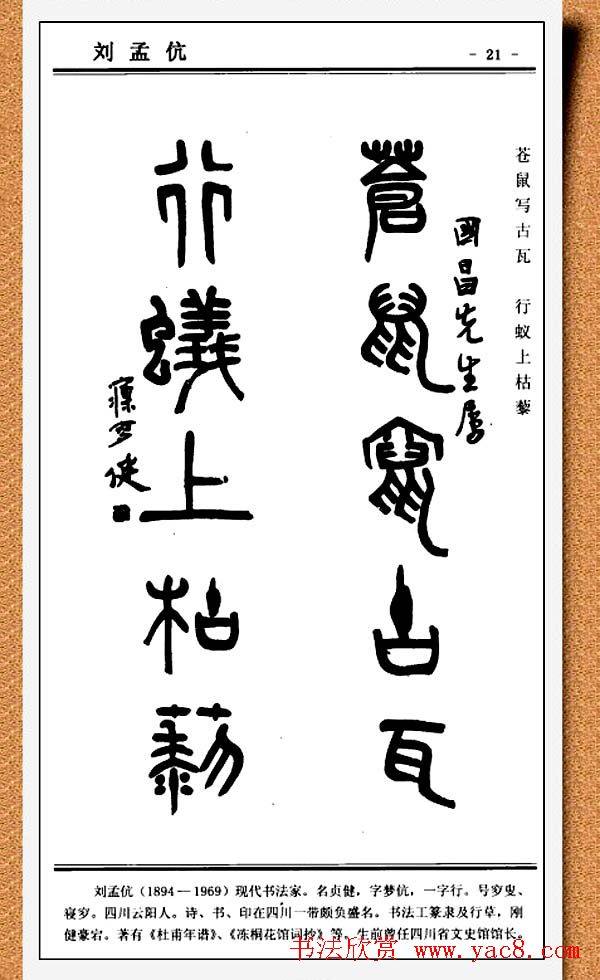 刘孟伉 - 21 -
苍鼠写古瓦 行蚁上枯藜
國昌先生屬
蒼鼠竄古瓦
行蟻上枯藜
刘孟伉（1894－1969）现代书法家。名贞健，字梦伉，一字行。号叟、
寝。四川云阳人。诗、书、印在四川一带颇负盛名。书法工篆隶及行草，刚
健豪宕。著有《杜甫年谱》、《冻桐花馆词抄》等。生前曾任四川省文史馆馆长。
书法欣赏 www.yac8.com